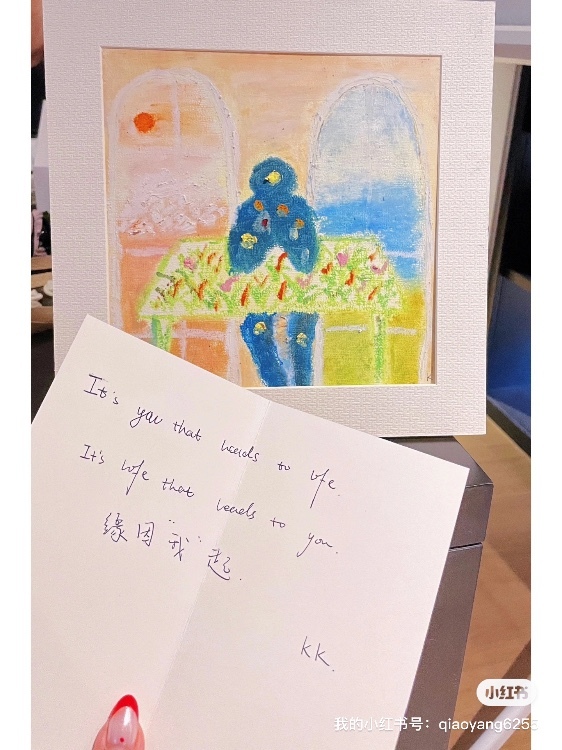 It's you that leads to life.
It's life that leads to you.
緣因"我"起.
KK.
小红书
我的小红书号：